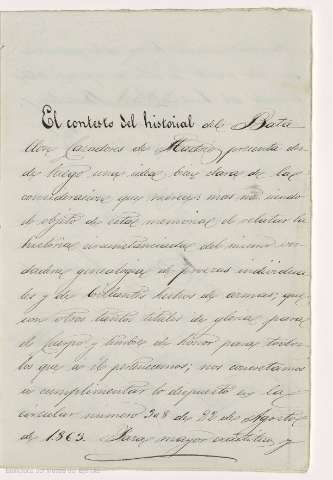 El contesto del historial del Bata
llon Cazadores de Madrid, presenta des
de luego una idea bien clara de las
consideraciones que merece; mas no siendo
el objeto de esta memoria el relatar la
historia circunstanciada del mismo ver
dadera genealogia de proezas individua
les y de brillantes hechos de armas; que
son otros tantos titulos de gloria para
el cuerpo y timbres de honor para todos
los que a el pertenecemos; nos concretamos
a cumplimentar lo dispuesto en la
circular numero 308 de 22 de Agosto
de 1863. Para mayor exactitud y